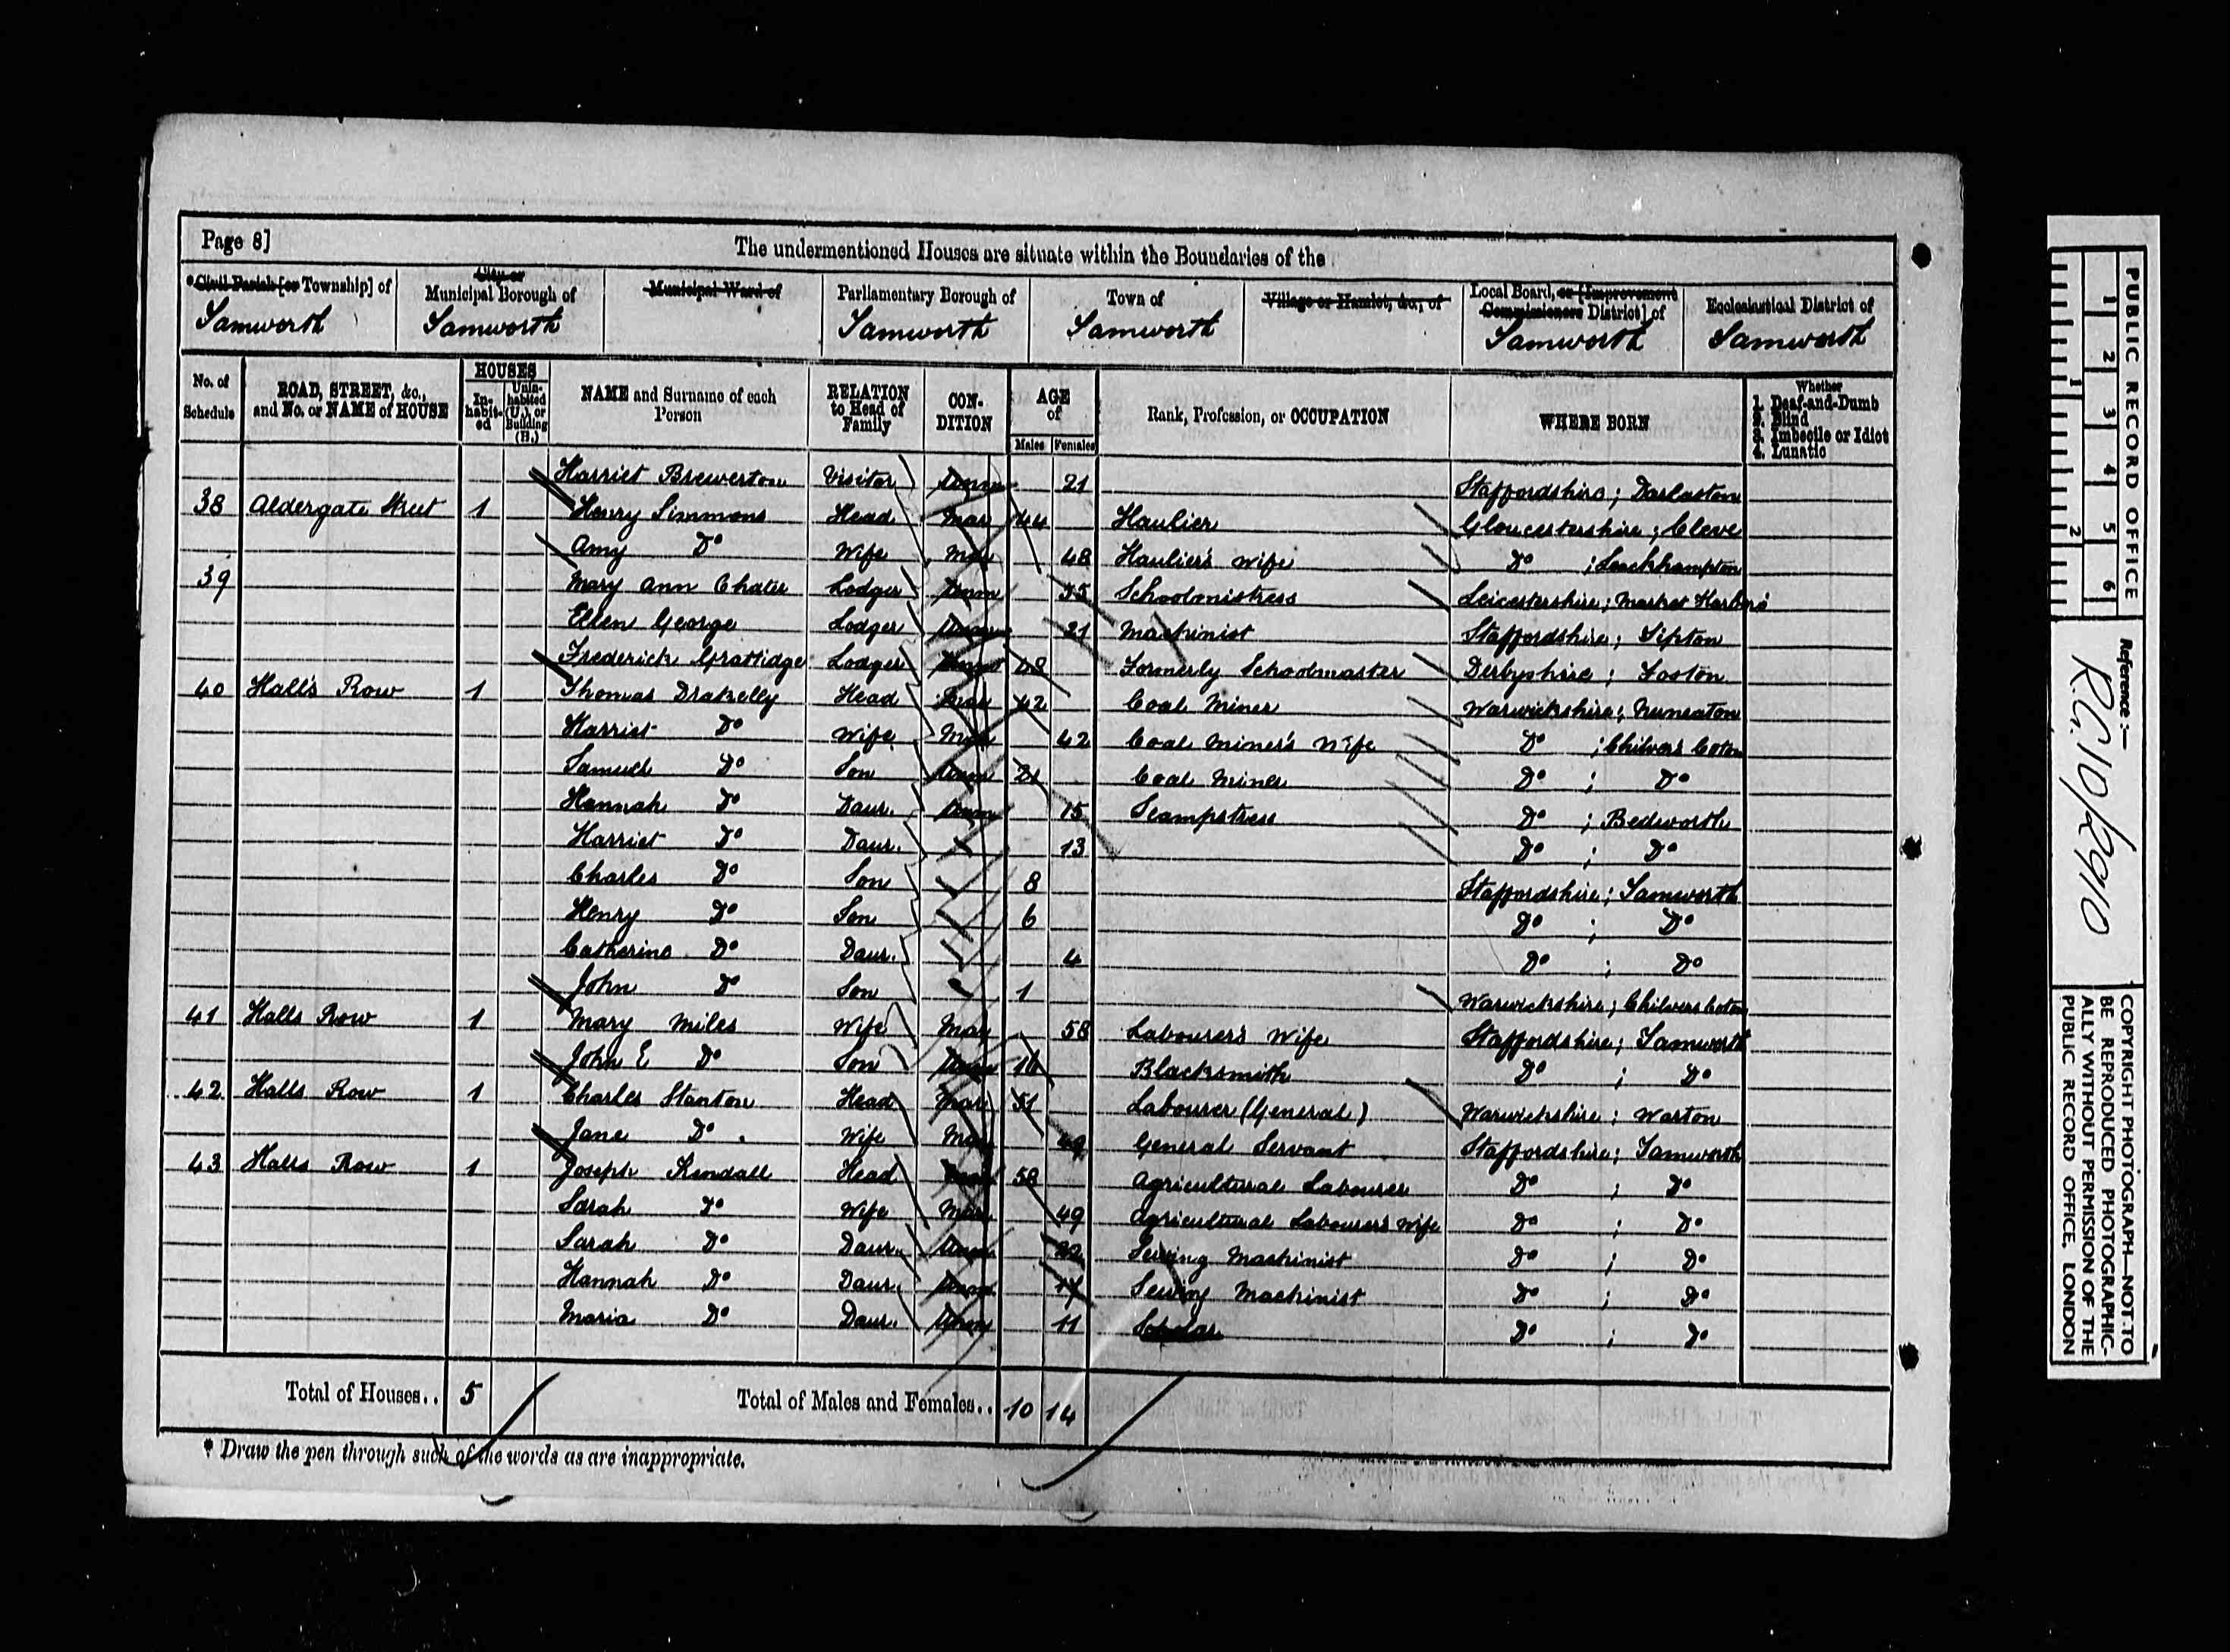 Page 8]
The undermentioned Houses are situate within the Boundaries of the
*Civil Parish [or Township] of
City or
Municipal Borough of
Municipal Ward of
Parliamentary Borough of
Town of
Village or Hamlet, &c., of
Local Board, or [Improvement
Commissioners District] of
Ecclesiastical District of
Tamworth Tamworth Tamworth Tamworth Tamworth Tamworth
No. of Schedule
ROAD, STREET, &c., and No. or NAME of HOUSE
HOUSES
In-habit-ed
Unin-habited (U.), or Building (B.)
NAME and Surname of each Person
RELATION to Head of Family
CON-DITION
AGE of
Males Females
Rank, Profession, or OCCUPATION
WHERE BORN
Whether
1. Deaf-and-Dumb
2. Blind
3. Imbecile or Idiot
4. Lunatic
Harriet Brewerton Visitor Unm 21 Staffordshire; Darlaston
38 Aldergate Street 1 Henry Simmons Head Mar 44 Haulier Gloucestershire; Cleve
Amy Do Wife Mar 48 Haulier's Wife Do ; Leackhampton
39 Mary Ann Chater Lodger Unm 35 Schoolmistress Leicestershire; Market Harboro'
Ellen George Lodger Unm 21 Machinist Staffordshire; Tipton
Frederick Grattidge Lodger 48 Formerly Schoolmaster Derbyshire; Foston
40 Hall's Row 1 Thomas Drakelly Head Mar 42 Coal Miner Warwickshire; Nuneaton
Harriet Do Wife Mar 42 Coal Miner's Wife Do ; Chilvers Coton
Samuel Do Son Unm 21 Coal Miner Do ; Do
Hannah Do Daur. Unm 15 Seampstress Do ; Bedworth
Harriet Do Daur. 13 Do ; Do
Charles Do Son 8 Staffordshire; Tamworth
Henry Do Son 6 Do ; Do
Catherine Do Daur. 4 Do ; Do
John Do Son 1 Warwickshire; Chilvers Coton
41 Halls Row 1 Mary Miles Wife Mar 58 Labourer's Wife Staffordshire; Tamworth
John E Do Son Unm 16 Blacksmith Do ; Do
42 Halls Row 1 Charles Stanton Head Mar 51 Labourer (General) Warwickshire; Warton
Jane Do Wife Mar 49 General Servant Staffordshire; Tamworth
43 Halls Row 1 Joseph Kendall Head 58 Agricultural Labourer Do ; Do
Sarah Do Wife Mar 49 Agricultural Labourer's Wife Do ; Do
Sarah Do Daur. Unm 22 Sewing Machinist Do ; Do
Hannah Do Daur. Unm Sewing Machinist Do ; Do
Maria Do Daur. Unm 11 Scholar Do ; Do
Total of Houses.. 5 Total of Males and Females.. 10 14
* Draw the pen through such of the words as are inappropriate.
PUBLIC RECORD OFFICE
1 2 3 4 5 6
1 2
Reference :-
R.G. 10/2910
COPYRIGHT PHOTOGRAPH—NOT TO
BE REPRODUCED PHOTOGRAPHIC-
ALLY WITHOUT PERMISSION OF THE
PUBLIC RECORD OFFICE, LONDON